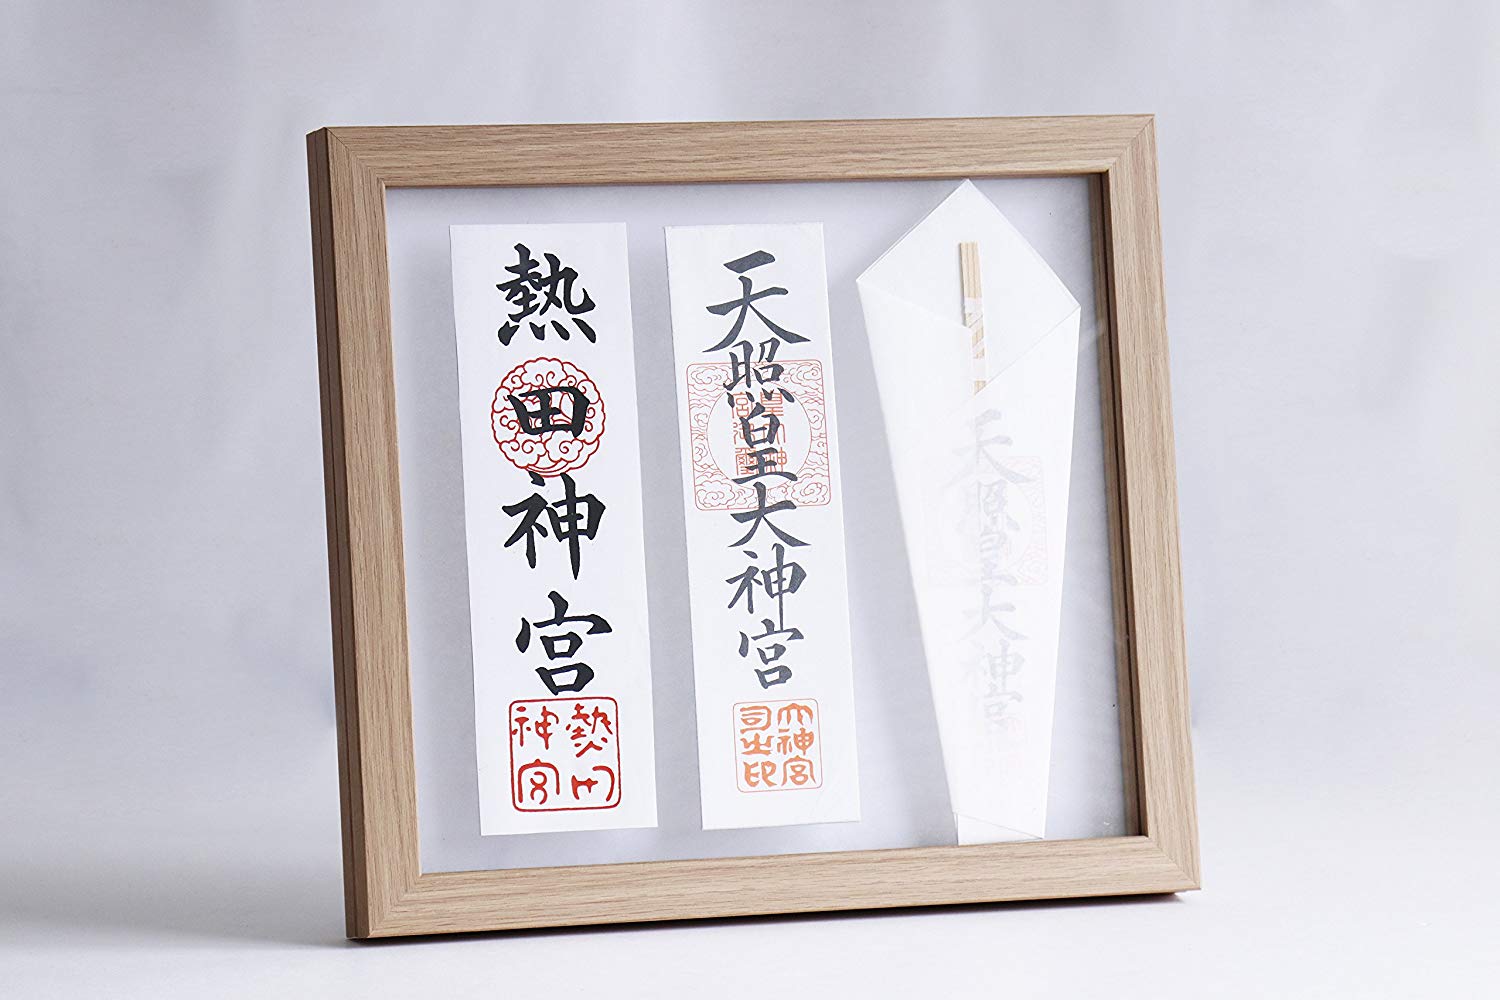 熱田神宮
熱田
神宮
天照皇大神宮
皇大神
宮御璽
大神宮
司之印
天照皇大神宮